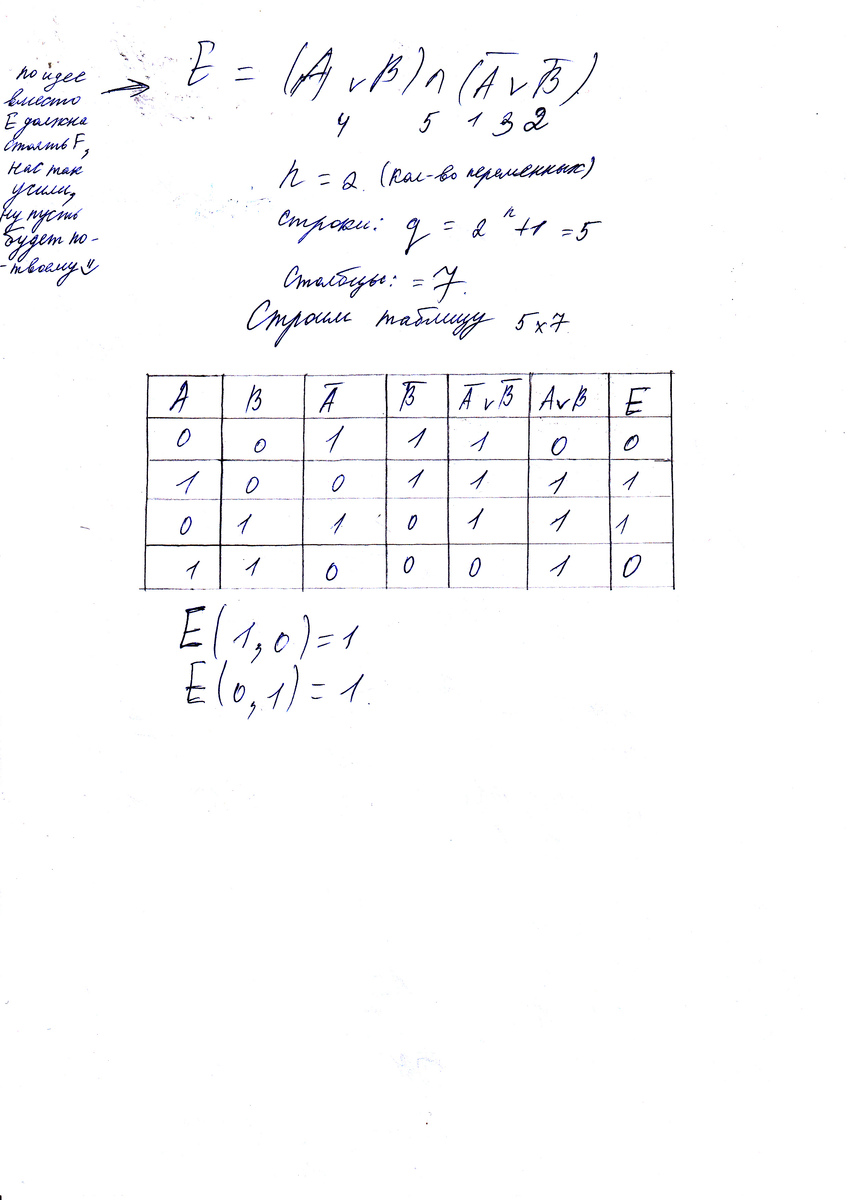 по идее
вместо
E должна
стоять F,
нас так
учили,
ну пусть
будет по-
-твоему
E = (A v B) ∧ (A̅ v B̅)
4 5 1 3 2
n = 2. (кол-во переменных)
строки: q = 2ⁿ+1 = 5
Столбцы: = 7.
Строим таблицу 5x7
A B A̅ B̅ A̅ v B̅ A v B E
0 0 1 1 1 0 0
1 0 0 1 1 1 1
0 1 1 0 1 1 1
1 1 0 0 0 1 0
E(1,0)=1
E(0,1)=1.